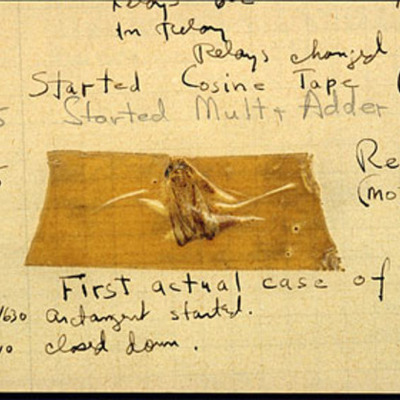 Relays
in relay
Relays changed
Started Cosine Tape (
Started Mult + Adder
5
Re
(mo
First actual case of
1630 arctangent started.
closed down.